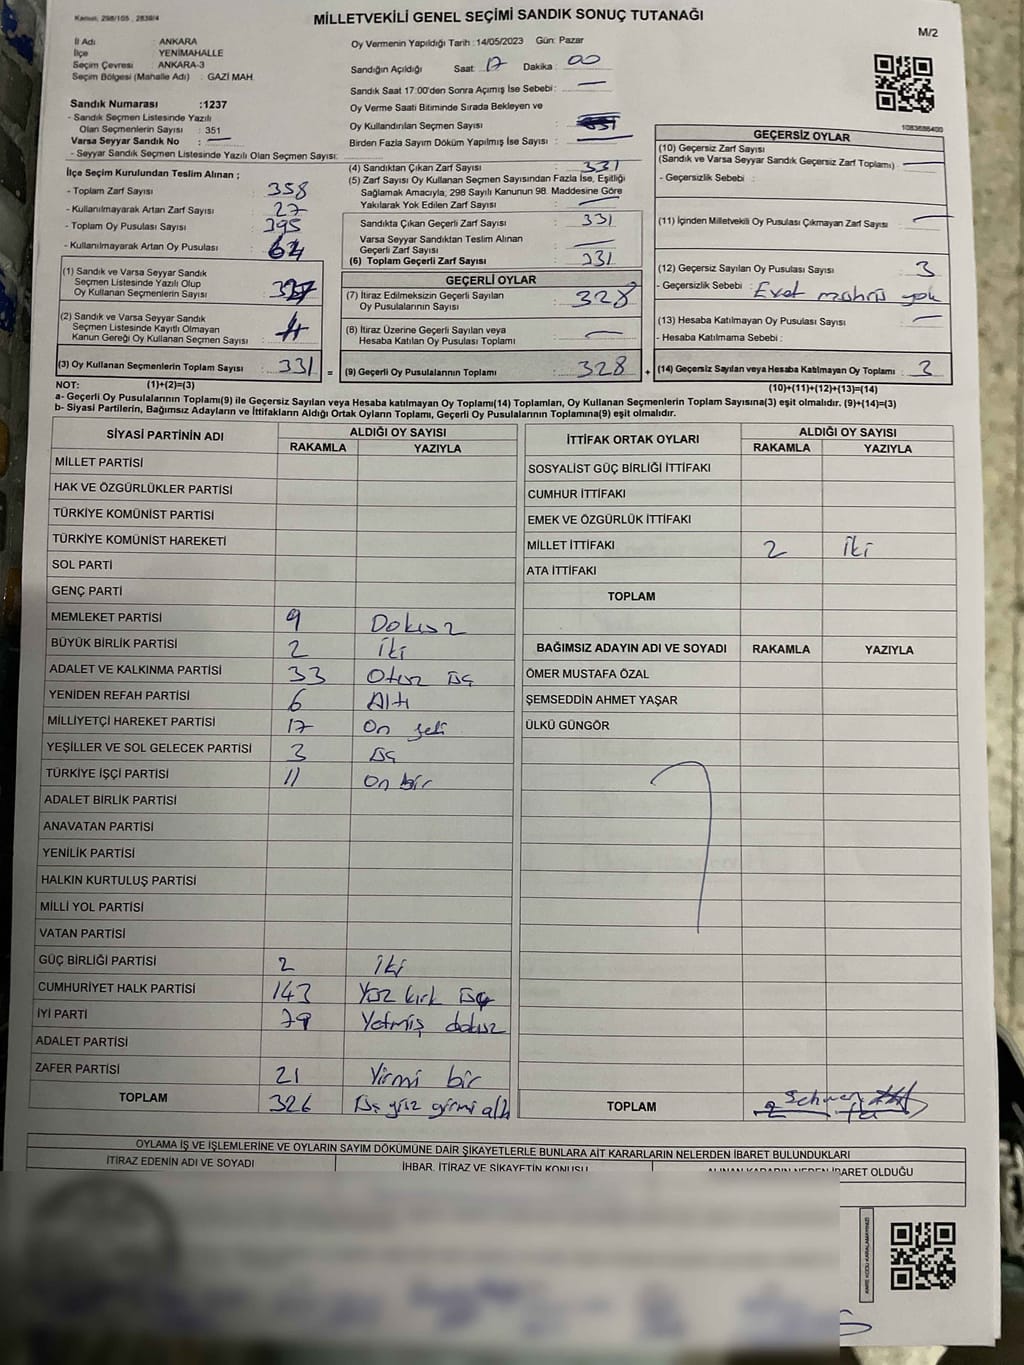 Kanun, 298/105 , 2839/4
MİLLETVEKİLİ GENEL SEÇİMİ SANDIK SONUÇ TUTANAĞI
M/2
İl Adı : ANKARA
İlçe : YENİMAHALLE
Seçim Çevresi : ANKARA-3
Seçim Bölgesi (Mahalle Adı) : GAZİ MAH.
Oy Vermenin Yapıldığı Tarih :14/05/2023 Gün: Pazar
Sandığın Açıldığı Saat: 17 Dakika : 00
Sandık Saat 17:00'den Sonra Açımış İse Sebebi: —
Oy Verme Saati Bitiminde Sırada Bekleyen ve
Oy Kullandırılan Seçmen Sayısı :
Birden Fazla Sayım Döküm Yapılmış İse Sayısı : —
Sandık Numarası :1237
- Sandık Seçmen Listesinde Yazılı
Olan Seçmenlerin Sayısı : 351
Varsa Seyyar Sandık No : —
- Seyyar Sandık Seçmen Listesinde Yazılı Olan Seçmen Sayısı:
İlçe Seçim Kurulundan Teslim Alınan ;
- Toplam Zarf Sayısı : 358
- Kullanılmayarak Artan Zarf Sayısı : 27
- Toplam Oy Pusulası Sayısı : 395
- Kullanılmayarak Artan Oy Pusulası : 64
(1) Sandık ve Varsa Seyyar Sandık
Seçmen Listesinde Yazılı Olup
Oy Kullanan Seçmenlerin Sayısı : 327
(2) Sandık ve Varsa Seyyar Sandık
Seçmen Listesinde Kayıtlı Olmayan
Kanun Gereği Oy Kullanan Seçmen Sayısı : 4
(3) Oy Kullanan Seçmenlerin Toplam Sayısı : 331 =
(4) Sandıktan Çıkan Zarf Sayısı : 331
(5) Zarf Sayısı Oy Kullanan Seçmen Sayısından Fazla İse, Eşitliği
Sağlamak Amacıyla, 298 Sayılı Kanunun 98. Maddesine Göre
Yakılarak Yok Edilen Zarf Sayısı : —
Sandıkta Çıkan Geçerli Zarf Sayısı : 331
Varsa Seyyar Sandıktan Teslim Alınan
Geçerli Zarf Sayısı : —
(6) Toplam Geçerli Zarf Sayısı : 331
GEÇERLİ OYLAR
(7) İtiraz Edilmeksizin Geçerli Sayılan
Oy Pusulalarının Sayısı : 328
(8) İtiraz Üzerine Geçerli Sayılan veya
Hesaba Katılan Oy Pusulası Toplamı : —
(9) Geçerli Oy Pusulalarının Toplamı : 328 +
1083686400
GEÇERSİZ OYLAR
(10) Geçersiz Zarf Sayısı
(Sandık ve Varsa Seyyar Sandık Geçersiz Zarf Toplamı) : —
- Geçersizlik Sebebi :
(11) İçinden Milletvekili Oy Pusulası Çıkmayan Zarf Sayısı : —
(12) Geçersiz Sayılan Oy Pusulası Sayısı : 3
- Geçersizlik Sebebi : Evet mührü yok
(13) Hesaba Katılmayan Oy Pusulası Sayısı : —
- Hesaba Katılmama Sebebi :
(14) Geçersiz Sayılan veya Hesaba Katılmayan Oy Toplamı : 3
NOT: (1)+(2)=(3)
(10)+(11)+(12)+(13)=(14)
a- Geçerli Oy Pusulalarının Toplamı(9) ile Geçersiz Sayılan veya Hesaba katılmayan Oy Toplamı(14) Toplamları, Oy Kullanan Seçmenlerin Toplam Sayısına(3) eşit olmalıdır. (9)+(14)=(3)
b- Siyasi Partilerin, Bağımsız Adayların ve İttifakların Aldığı Ortak Oyların Toplamı, Geçerli Oy Pusulalarının Toplamına(9) eşit olmalıdır.
SİYASİ PARTİNİN ADI
ALDIĞI OY SAYISI
RAKAMLA YAZIYLA
MİLLET PARTİSİ
HAK VE ÖZGÜRLÜKLER PARTİSİ
TÜRKİYE KOMÜNİST PARTİSİ
TÜRKİYE KOMÜNİST HAREKETİ
SOL PARTİ
GENÇ PARTİ
MEMLEKET PARTİSİ 9 Dokuz
BÜYÜK BİRLİK PARTİSİ 2 İki
ADALET VE KALKINMA PARTİSİ 33 Otuz üç
YENİDEN REFAH PARTİSİ 6 Altı
MİLLİYETÇİ HAREKET PARTİSİ 17 On yedi
YEŞİLLER VE SOL GELECEK PARTİSİ 3 üç
TÜRKİYE İŞÇİ PARTİSİ 11 On bir
ADALET BİRLİK PARTİSİ
ANAVATAN PARTİSİ
YENİLİK PARTİSİ
HALKIN KURTULUŞ PARTİSİ
MİLLİ YOL PARTİSİ
VATAN PARTİSİ
GÜÇ BİRLİĞİ PARTİSİ 2 İki
CUMHURİYET HALK PARTİSİ 143 Yüz kırk üç
İYİ PARTİ 79 Yetmiş dokuz
ADALET PARTİSİ
ZAFER PARTİSİ 21 Yirmi bir
TOPLAM 326 Üç yüz yirmi altı
İTTİFAK ORTAK OYLARI
ALDIĞI OY SAYISI
RAKAMLA YAZIYLA
SOSYALİST GÜÇ BİRLİĞİ İTTİFAKI
CUMHUR İTTİFAKI
EMEK VE ÖZGÜRLÜK İTTİFAKI
MİLLET İTTİFAKI 2 İki
ATA İTTİFAKI
TOPLAM
BAĞIMSIZ ADAYIN ADI VE SOYADI RAKAMLA YAZIYLA
ÖMER MUSTAFA ÖZAL
ŞEMSEDDİN AHMET YAŞAR
ÜLKÜ GÜNGÖR
TOPLAM
OYLAMA İŞ VE İŞLEMLERİNE VE OYLARIN SAYIM DÖKÜMÜNE DAİR ŞİKAYETLERLE BUNLARA AİT KARARLARIN NELERDEN İBARET BULUNDUKLARI
İTİRAZ EDENİN ADI VE SOYADI
İHBAR, İTİRAZ VE ŞİKAYETİN KONUSU
ALINAN KARARIN NEDEN İBARET OLDUĞU